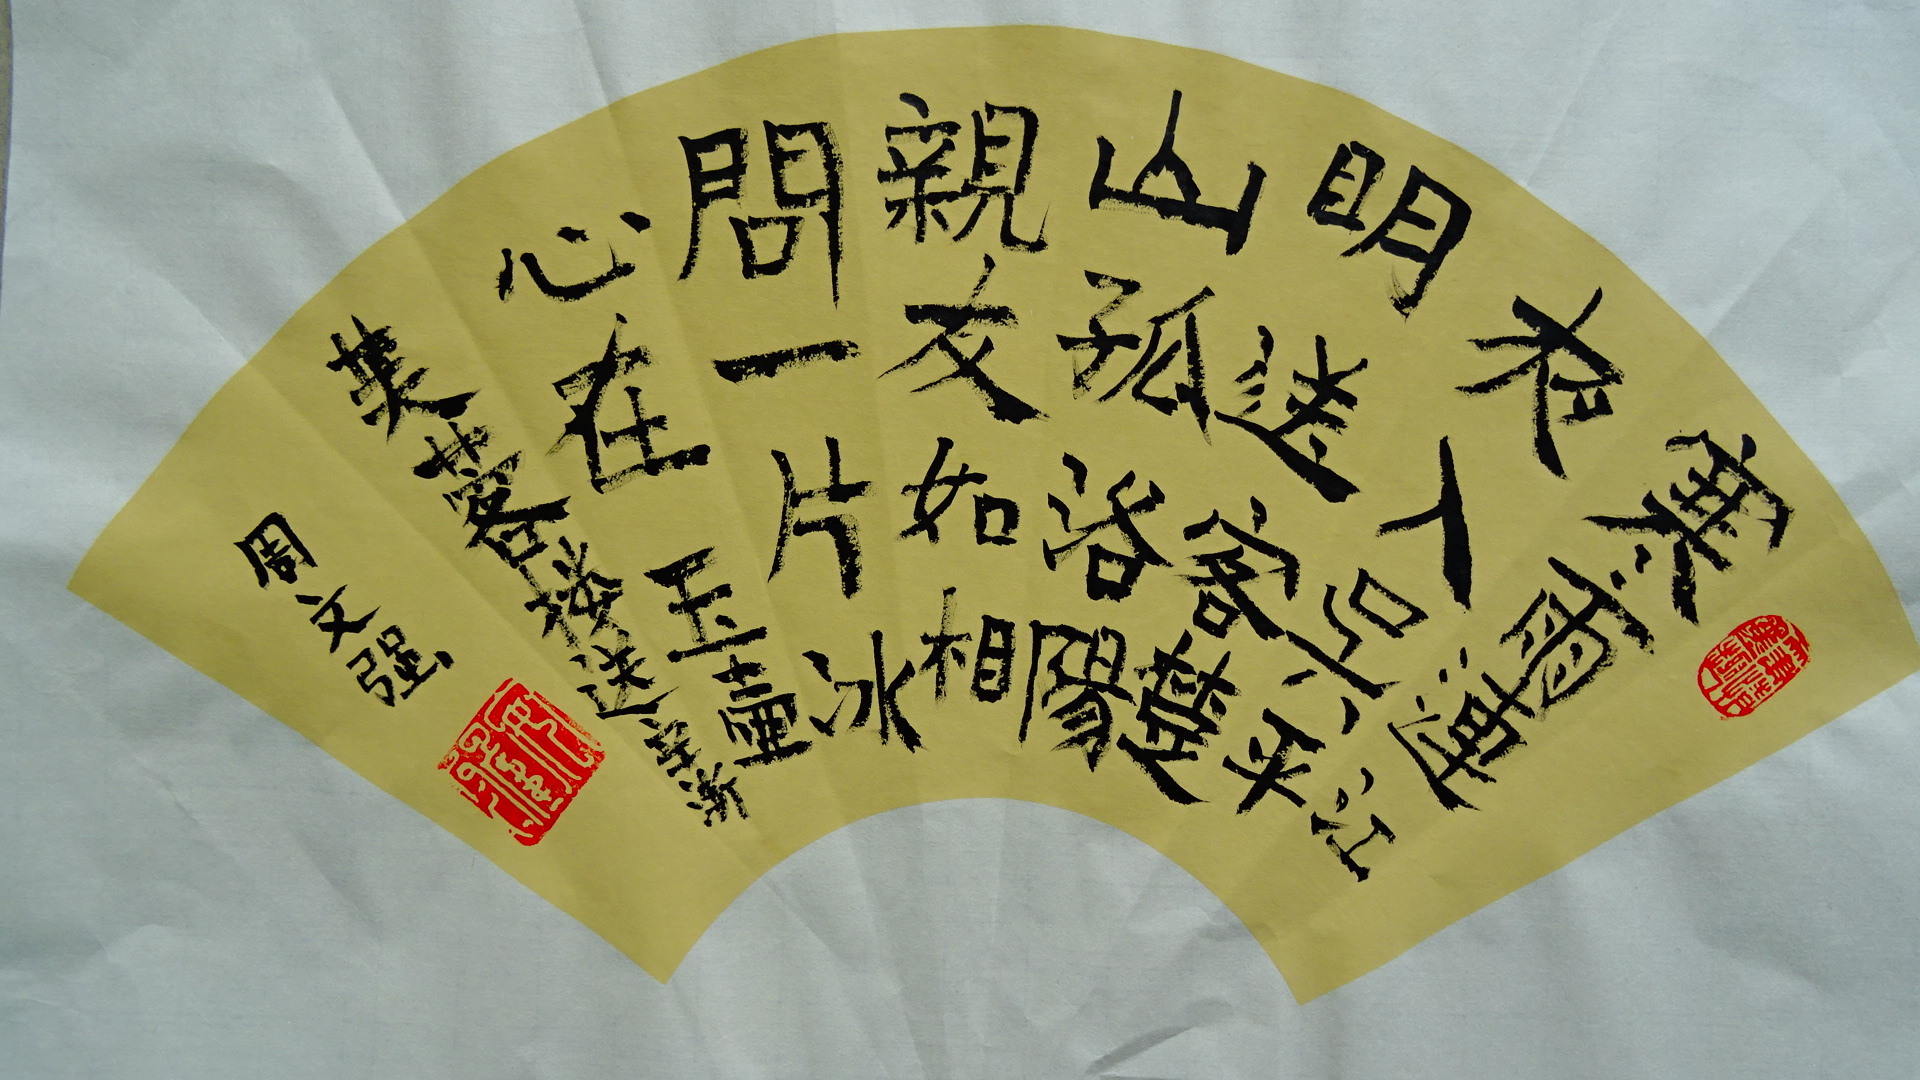 寒雨連江
夜入吴平
明送客楚
山孤洛陽
親友如相
問一片冰
心在玉壺
芙蓉楼送辛渐
周文强